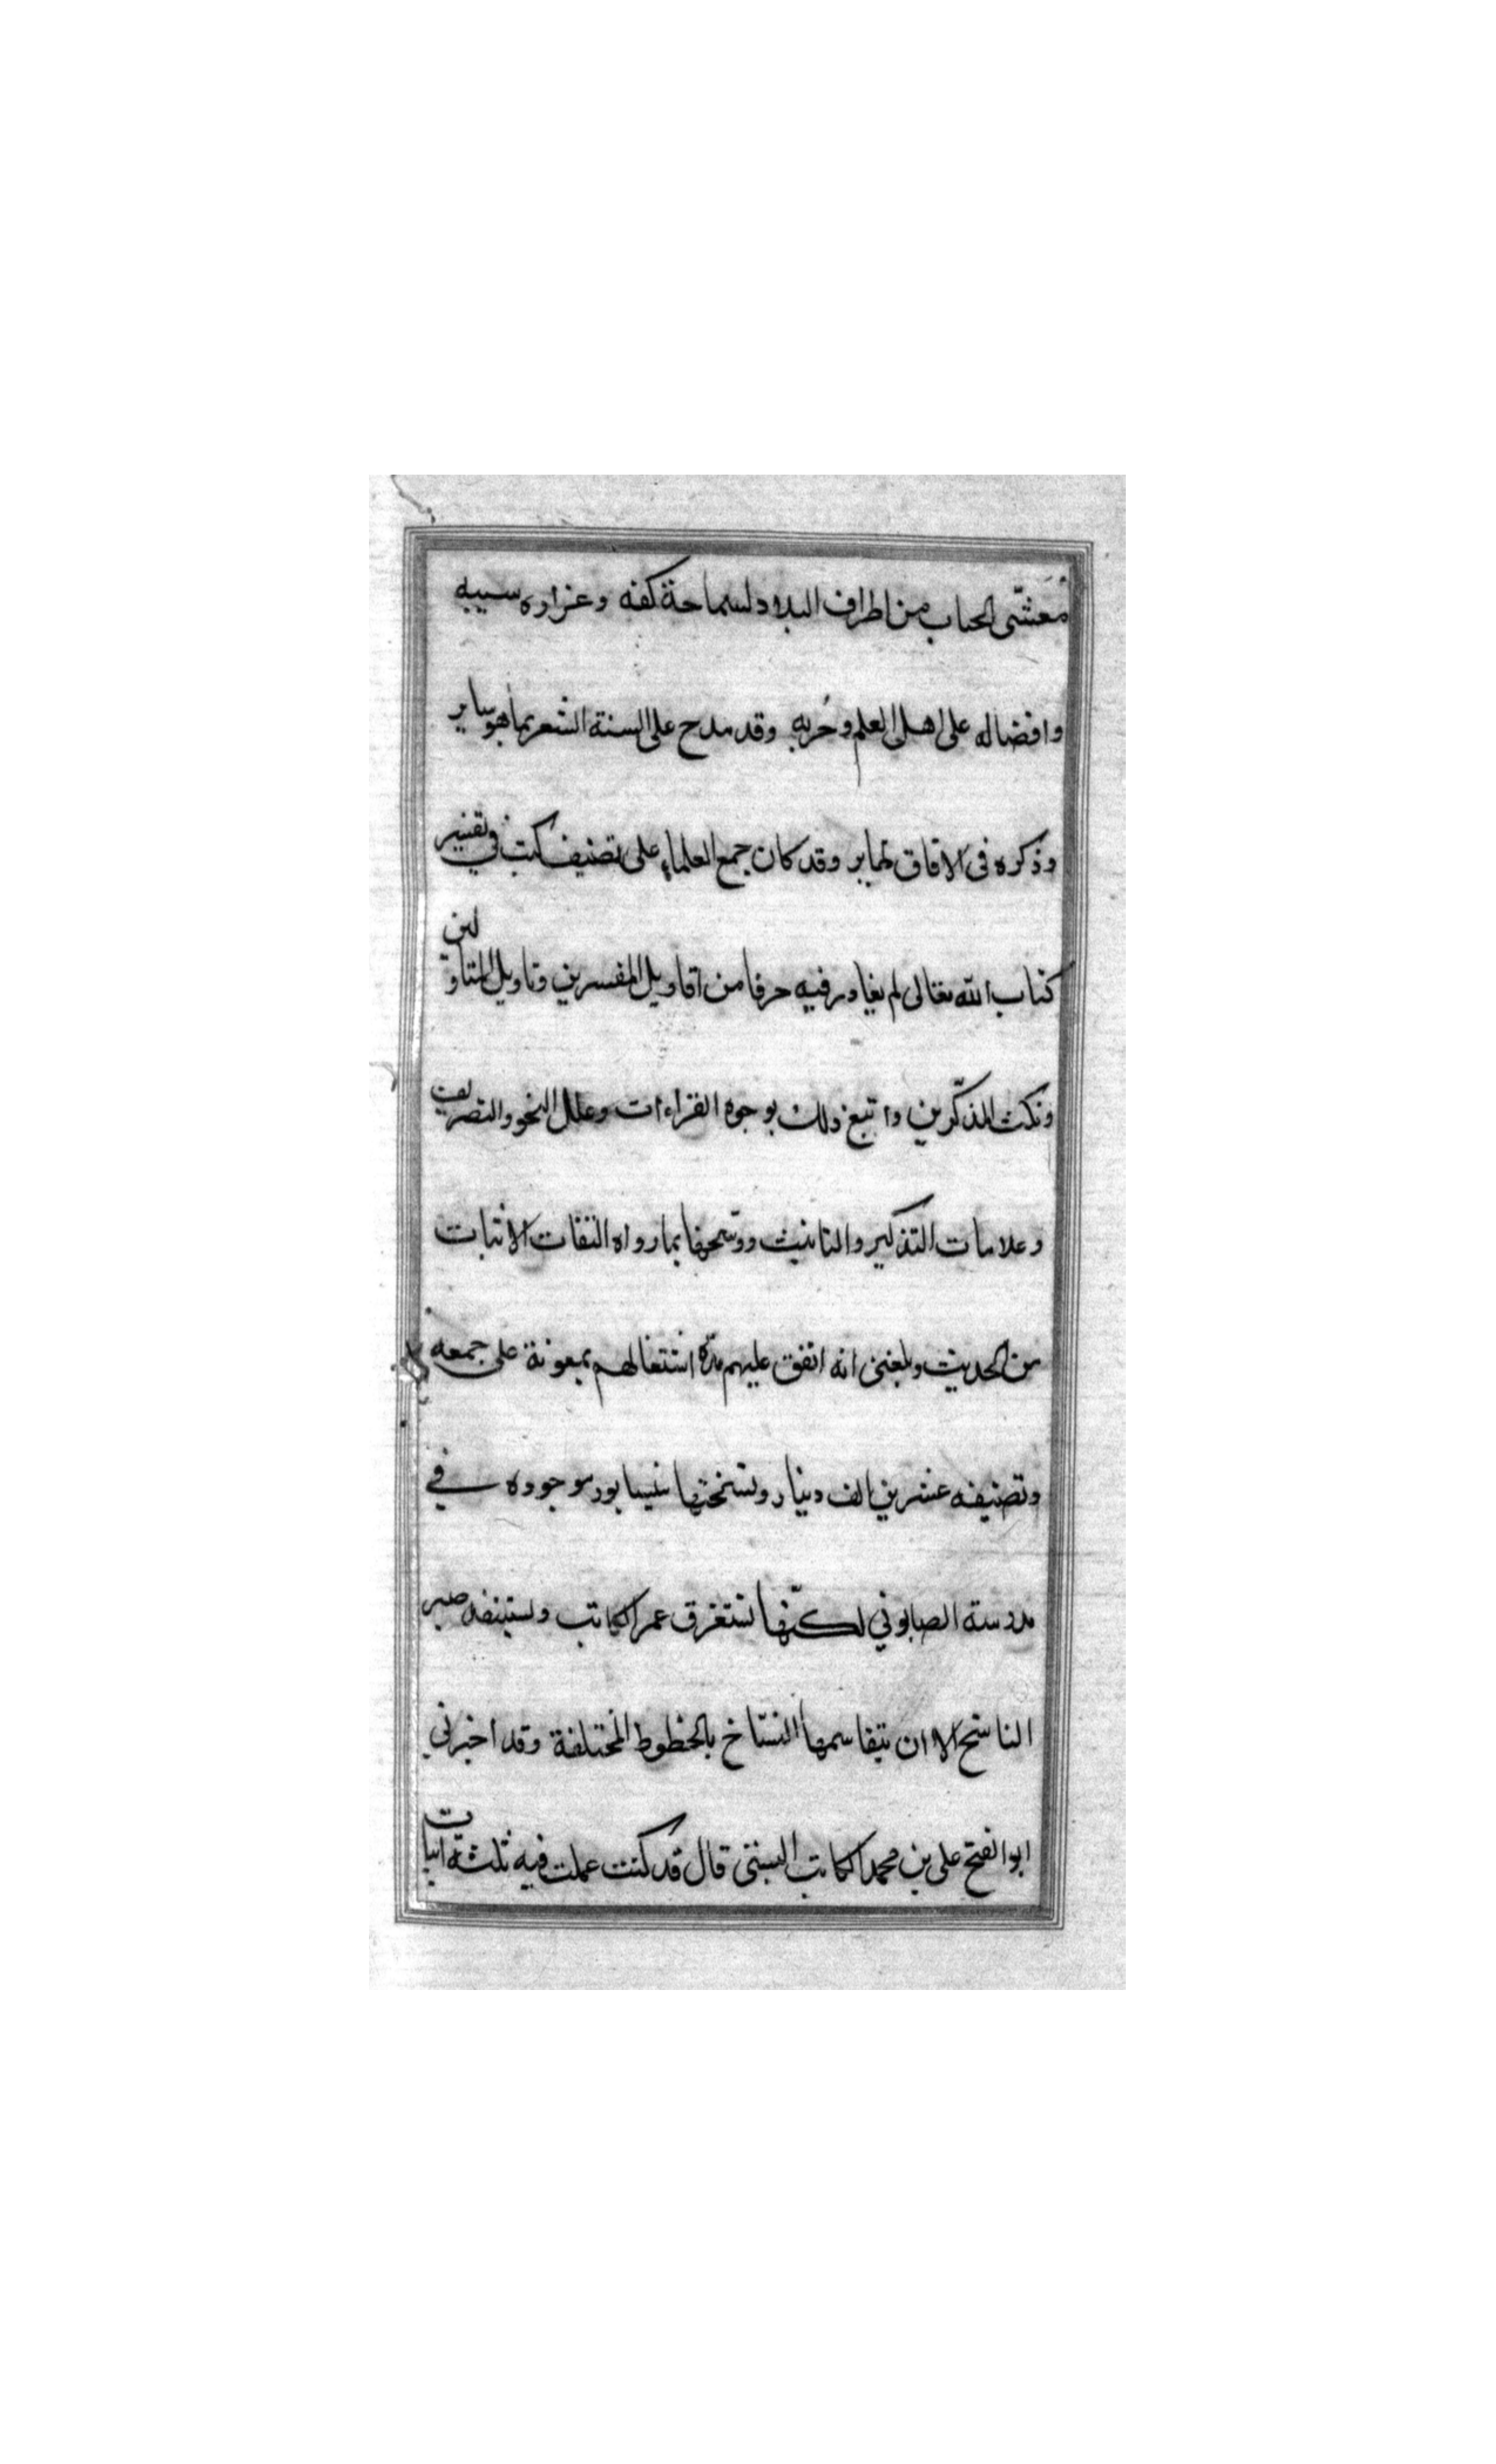 مُغَشّى الجناب من اطراف البلاد لسماحة كفه وغزاره سيبه
وافضاله على اهل العلم وحُزبه وقد مدح على السنة الشعر بما هو ساير
وذكره فى الافاق طاير وقد كان جمع العلماء على تصنيف كتب فى تفسير
كتاب الله تعالى لم يغادر فيه حرفا من اقاويل المفسرين وتاويل المتاولين
ونكت المذكّرين واتبع ذلك بوجوه القراءات وعلل النحو والتصريف
وعلامات التذكير والتانيث ووشحها بما رواه الثقات الاثبات
من الحديث وبلغنى انه انفق عليهم مدّة اشتغالهم بمعونة على جمعه
وتصنيفه عشرين الف دينار ونسختها بنيسابور موجوده في
مدرسة الصابوني لكنّها تستغرق عمر الكاتب ويستنفد صبر
الناسخ الا ان يتقاسمها النسّاخ بالخطوط المختلفة وقد اخبرني
ابو الفتح على بن محمد الكاتب البستى قال قد كنت عملت فيه ثلثة ابيات